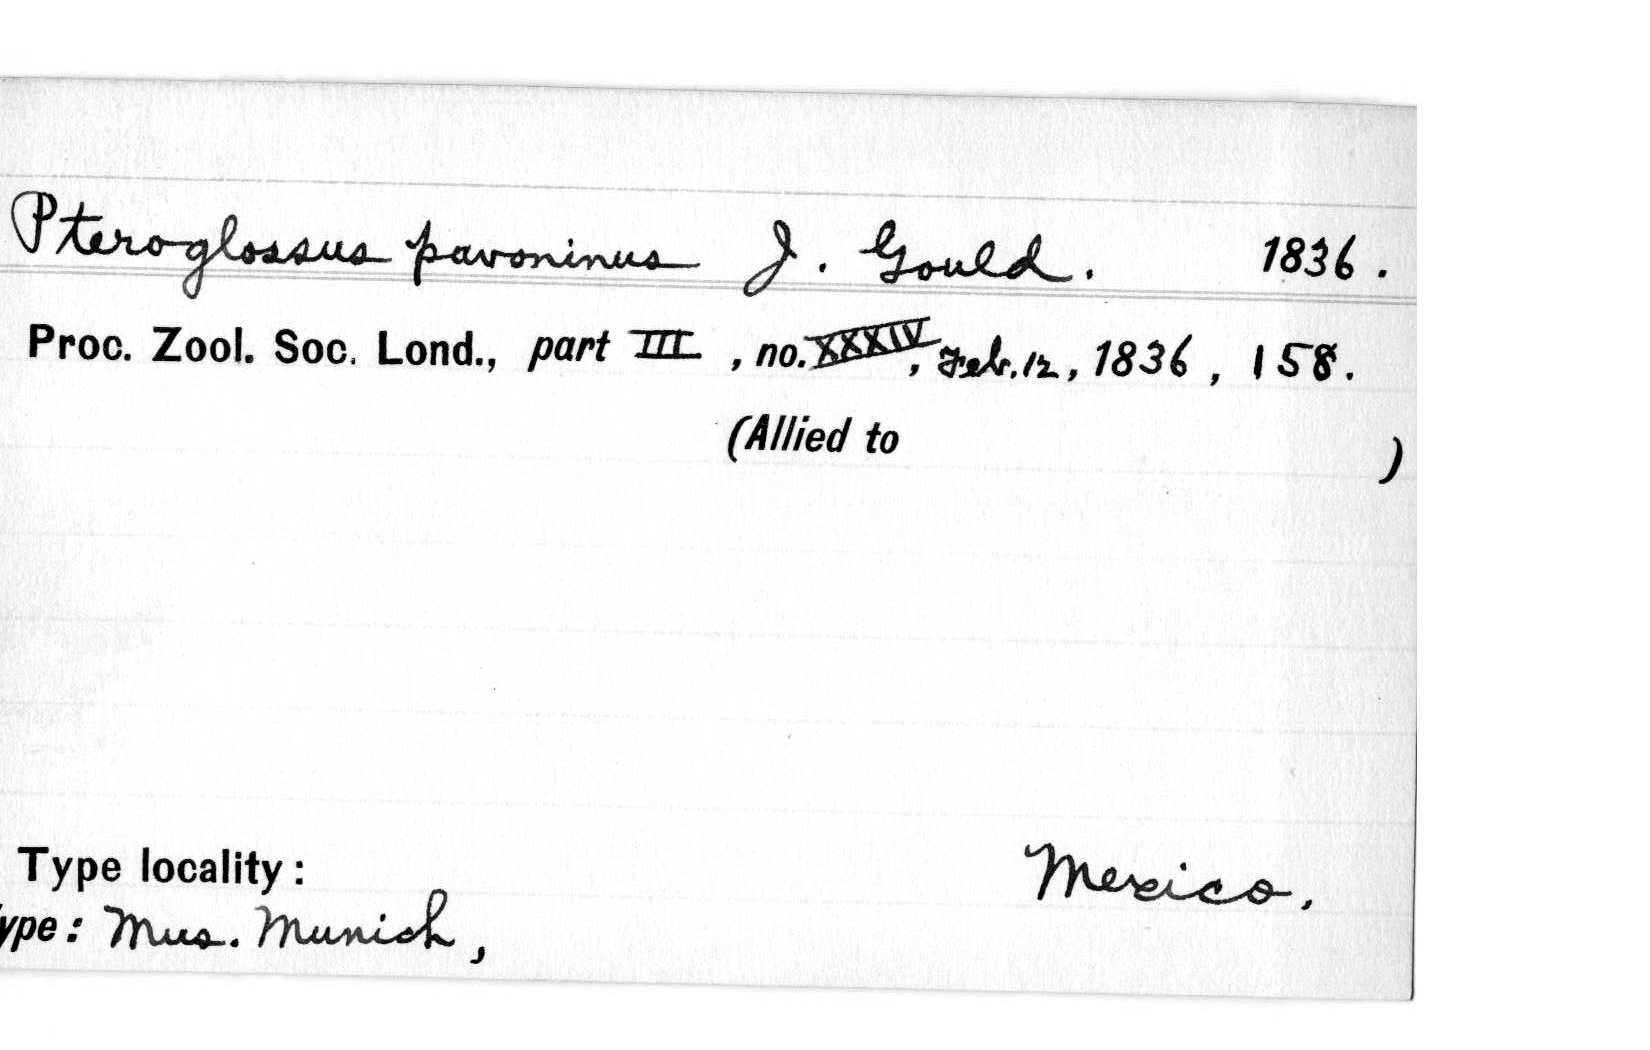 Pteroglossus pavoninus J. Gould. 1836.
Proc. Zool. Soc. Lond., part III, no. XXXIV, Feb. 12, 1836, 158.
(Allied to )
Type locality: Mexico.
ype: Mus. Munich,